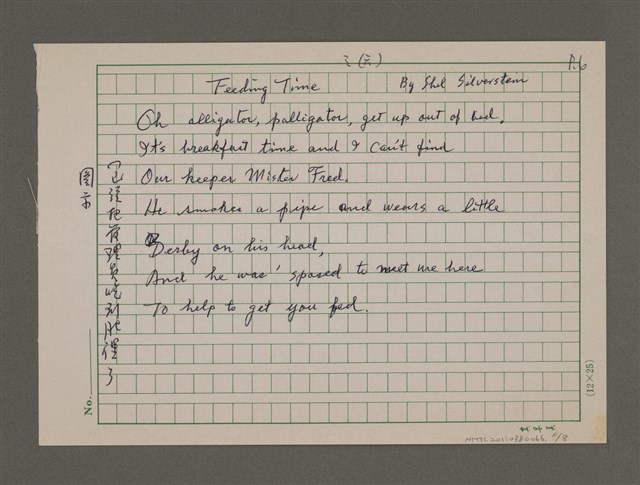 三(六)
P.6
Feeding Time By Shel Silverstein
Oh alligator, palligator, get up out of bed.
It's breakfast time and I can't find
Our keeper Mister Fred.
He smokes a pipe and wears a little
Derby on his head,
And he was' sposed to meet me here
To help to get you fed.
圖示
(已經把管理員吃到肚裡了
No.
(12×25)
NMTL20110880066 6/8